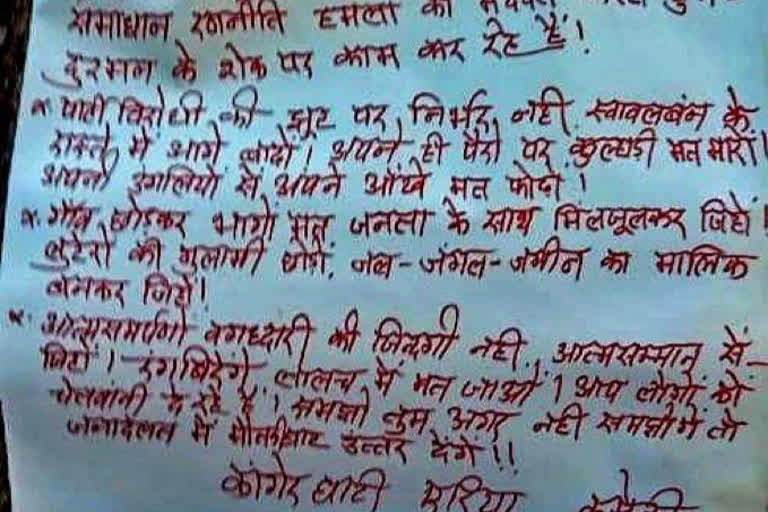 समाधान रणनीति हमला को
दुश्मन के शेक पर काम कर रहे हैं!
* पार्टी विरोधी की झूट पर निर्भर नही, स्वावलबंन के
रास्ते में आगे बढ़ो! अपने ही पैरो पर कुल्हाडी मत मारो!
अपनी उंगलियो सें अपने आँखे मत फोडो!
* गाँव छोडकर भागो मत जनता के साथ मिलजूलकर जिओं!
लुटेरो की गुलामी छोडों, जल-जंगल-जमीन का मालिक
बनकर जिओं!
* आत्मसमर्पणो की जिन्दगी नही, आत्मसम्मान सें-
जिओं! रंगबिरेंगे लालच में मत जाओं! आप लोगो को
चेतवानी दे रहे है! समझो तुम अगर नही समझोगे तो
जनादलत में उत्तर देगें!!
कांगेर घाटी एरिया कमेटी